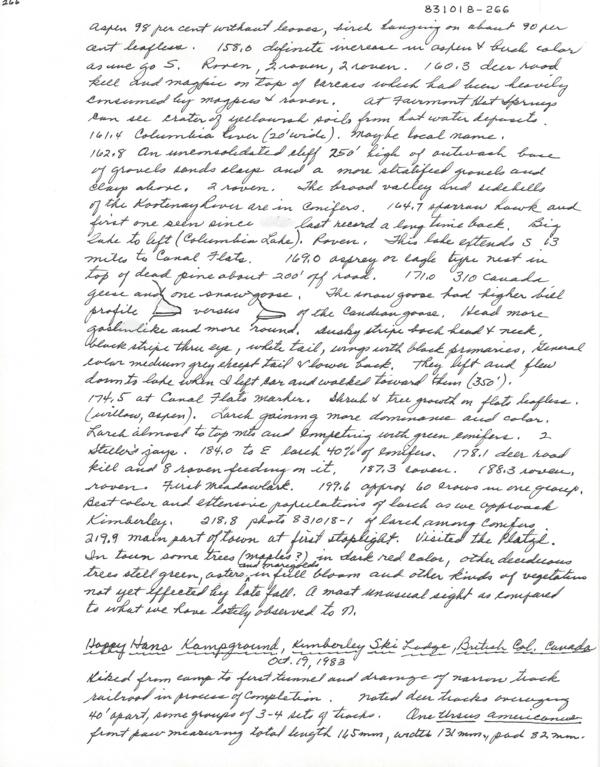 266
831018-266
aspen 98 per cent without leaves, birch hanging on about 90 per
cent leafless. 158.0 definite increase in aspen & bush color
as we go S. Raven, 2 raven, 2 raven. 160.3 deer road
kill and magpie on top of carcass which had been heavily
consumed by magpies & raven. At Fairmont Hot Springs
can see crater of yellowish soils from hot water deposits.
161.4 Columbia River (20' wide). Maybe local name.
162.8 An unconsolidated cliff 250' high of outwash base
of gravels sands clays and a more stratified gravels and
clays above. 2 raven. The broad valley and sidehills
of the Kootenay River are in conifers. 164.7 sparrow hawk and
first one seen since last record a long time back. Big
lake to left (Columbia Lake). Raven. This lake extends S 13
miles to Canal Flats. 169.0 osprey or eagle type nest in
top of dead pine about 200' off road. 171.0 310 Canada
geese and one snow goose. The snow goose had higher bill
profile versus of the Candian goose. Head more
goslinlike and more round, dusky stripe back head & neck,
black stripe thru eye, white tail, wings with black primaries. General
color medium grey except tail & lower back. They left and flew
down to lake when I left car and walked toward them (350').
174.5 at Canal Flats marker. Shrub & tree growth on flats leafless.
(willow, aspen). Larch gaining more dominance and color.
Larch almost to top mts and competing with green conifers. 2
Steller's jays. 184.0 to E larch 40% of conifers. 178.1 deer road
kill and 8 raven feeding on it. 187.3 raven. 188.3 raven,
raven. First Meadowlark. 199.6 approx 60 crows in one group.
Best color and extensive populations of larch as we approach
Kimberley. 218.8 photo 831018-1 of larch among conifers.
219.9 main part of town at first stoplight. Visited the Platzl.
In town some trees (maples?) in dark red color, other deciduous
trees still green, asters and marigolds in full bloom and other kinds of vegetation
not yet effected by late fall. A most unusual sight as compared
to what we have lately observed to N.
Happy Hans Kampground, Kimberley Ski Lodge, British Col. Canada
Oct. 19, 1983
Hiked from camp to first tunnel and drainage of narrow track
railroad in process of completion. Noted deer tracks averaging
40' apart, some groups of 3-4 sets of tracks. One Ursus americanus
front paw measuring total length 165mm, width 131mm, pad 82mm.